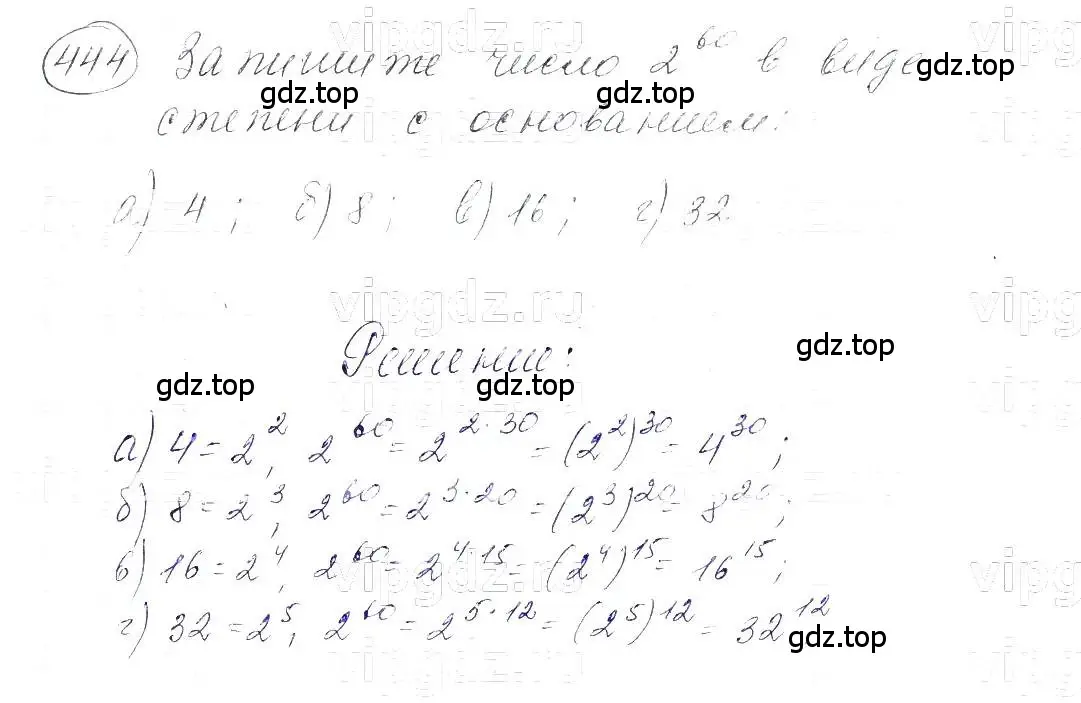 444 Запишите число 2^60 в виде
степени с основанием:
а) 4; б) 8; в) 16; г) 32.
Решение:
а) 4 = 2^2, 2^60 = 2^{2·30} = (2^2)^30 = 4^30;
б) 8 = 2^3, 2^60 = 2^{3·20} = (2^3)^20 = 8^20;
в) 16 = 2^4, 2^60 = 2^{4·15} = (2^4)^15 = 16^15;
г) 32 = 2^5, 2^60 = 2^{5·12} = (2^5)^12 = 32^12
gdz.top
gdz.top
gdz.top
gdz.top
gdz.top
gdz.top
gdz.top
vipgdz.ru
vipgdz.ru